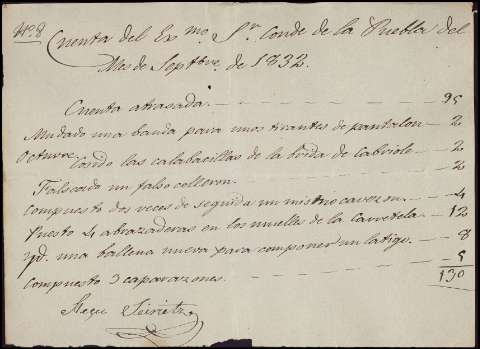 Nº 8
Cuenta del Exmo. Sr. Conde de la Puebla del
Mes de Septbre. de 1832.
Cuenta atrasada. 95
Mudado una banda para unos tirantes de pantalon 2
Octubre. Cosido las calabacillas de la brida de Cabriole 2
Falseado un falso colleron. 2
compuesto dos veces de seguida un mismo cavezon. 4
puesto 4 abrazaderas en los muelles de la Carretela. 12
yd. una ballena nueva para componer un latigo. 8
compuesto 3 caparazones. 5
130